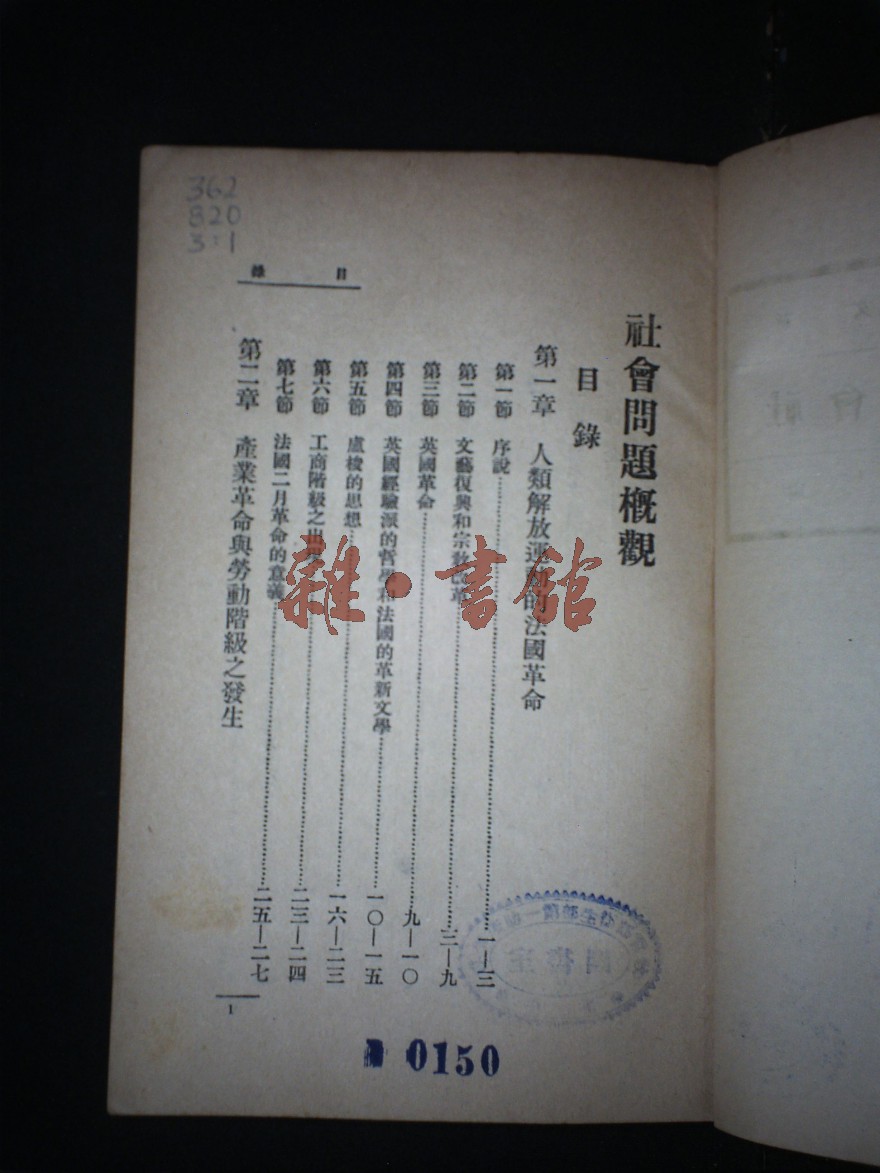 社會問題概觀
目錄
第一章 人類解放運動的法國革命
第一節 序說 一—三
第二節 文藝復興和宗教改革 三—九
第三節 英國革命 九—一〇
第四節 英國經驗派的哲學和法國的革新文學 一〇—一五
第五節 盧梭的思想 一六—二三
第六節 工商階級之出 二三—二四
第七節 法國二月革命的意義 二五—二七
第二章 產業革命與勞動階級之發生
目錄
1
362
820
3:1
雜·書館
0150